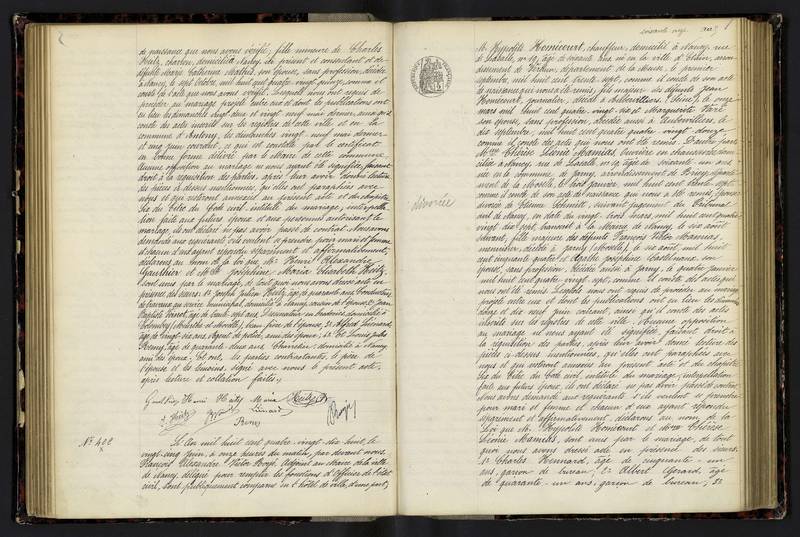 de naissance que nous avons vérifié; fille mineure de Charles
Heitz, charron, domicilié à Nancy, ici présent et consentant et de
défunte Marie Catherine Mathis, son épouse, sans profession, décédée
à Nancy, le sept Octobre, mil huit cent quatre vingt quinze, comme il
conste de l'acte que nous avons vérifié. Lesquels nous ont requis de
procéder au mariage projeté entre eux et dont les publications ont
eu lieu les dimanches vingt deux et vingt neuf mai dernier, ainsi qu'il
conste des actes inscrits sur les registres de cette ville et en la
commune d'Antony, les dimanches vingt neuf mai dernier
et cinq juin courant, ce qui est constaté par le certificat
en bonne forme délivré par le Maire de cette commune
Aucune opposition au mariage ne nous ayant été signifiée, faisant
droit à la réquisition des parties, après leur avoir donné lecture
des pièces ci-dessus mentionnées, qu'elles ont paraphées avec
nous et qui resteront annexées au présent acte et du chapitre
six du titre du Code civil, intitulé du mariage, interpella-
tion faite aux futurs époux et aux personnes autorisant le
mariage, ils ont déclaré ne pas avoir passé de contrat. Nous avons
demandé aux requérants s'ils veulent se prendre pour mari et femme
et chacun d'eux ayant répondu séparément et affirmativement,
déclarons, au nom de la loi que, Mr Henri Alexandre
Gauthier et Mlle Joséphine Maria Elisabeth Heitz
sont unis par le mariage, de tout quoi nous avons dressé acte en
présence des sieurs: 1° Joseph Julien Heitz, âgé de quarante ans, Conducteur
de travaux
Baptiste
Colombey (Meurthe et Moselle), beau frère de l'épouse, 3° Alfred Liénard,
âgé de vingt six ans, Agent de police, ami des époux; 4° et Louis Jules
Remy, âgé de quarante deux ans, domicilié à Nancy,
ami des époux. Et ont, les parties contractantes, le père de
l'épouse et les témoins, signé avec nous le présent acte,
après lecture et collation faites.
Gauthier Henri Heitz Maria Heitz
J. Heitz Liénard
Remy
No 402
L'an mil huit cent quatre-vingt dix huit, le
vingt-cinq juin, à onze heures du matin, par devant nous,
François Alexandre Victor Adjoint au maire de la ville
de Nancy, délégué pour remplir les fonctions d'officier de l'état
civil, sont publiquement comparus en l'hôtel de ville, d'une part,
Mr Hyppolite Homicourt, chauffeur, domicilié à Nancy, rue
de Lasalle, no 19, âgé de soixante ans, né en la ville d'Etain, arron-
dissement de Verdun, département de la Meuse, le premier
septembre, mil huit cent trente sept, comme il conste de son acte
de naissance qui nous a été remis, fils majeur des défunts Jean
Homicourt, journalier, décédé à Aubervilliers (Seine), le onze
mars mil huit cent quatre vingt six et Marguerite
son épouse, sans profession, décédée aussi à Aubervilliers, le
dix septembre, mil huit cent quatre vingt douze
comme il conste des actes qui nous ont été remis. D'autre part,
Mme Thérèse Léonie Mamias, ouvrière en chaussures, domi-
ciliée à Nancy, rue de Lasalle no 19, âgée de soixante un ans,
née en la commune de Jarny, arrondissement de Briey, départe-
ment de la Moselle, le trois janvier, mil huit cent trente sept,
comme il conste de son acte de naissance qui nous a été remis, épouse
divorcée de Schmitt, suivant jugement du Tribunal
civil de Nancy, en date du vingt trois mars, mil huit cent quatre
vingt dix sept, transcrit à la Mairie de Nancy, le six août
suivant, fille majeure des défunts François Victor Mamias,
menuisier, décédé à Jarny (Moselle), le six août, mil huit
cent cinquante quatre et Agathe Joséphine son
épouse, sans profession, décédée aussi à Jarny, le quatre janvier
mil huit cent quatre vingt sept, comme il conste des actes qui
nous ont été remis. Lesquels nous ont requis de procéder au mariage
projeté entre eux et dont les publications ont eu lieu les dimanches
douze et dix neuf juin courant, ainsi qu'il conste des actes
inscrits sur les registres de cette ville. Aucune opposition
au mariage ne nous ayant été signifiée, faisant droit à
la réquisition des parties, après leur avoir donné lecture des
pièces ci-dessus mentionnées, qu'elles ont paraphées avec
nous et qui resteront annexées au présent acte et du chapitre
six du titre du Code civil, intitulé du mariage, interpellation
faite aux futurs époux, ils ont déclaré ne pas avoir passé de contrat.
Nous avons demandé aux requérants s'ils veulent se prendre
pour mari et femme et chacun d'eux ayant répondu
séparément et affirmativement, déclarons au nom de la
loi que Mr Hyppolite Homicourt et Mme Thérèse
Léonie Mamias, sont unis par le mariage, de tout
quoi nous avons dressé acte en présence des sieurs:
1° Charles Hennard, âgé de cinquante-un
ans, garçon de bureau; 2° Albert Gérard, âgé
de quarante-un ans, garçon de bureau; 3°
divorcée